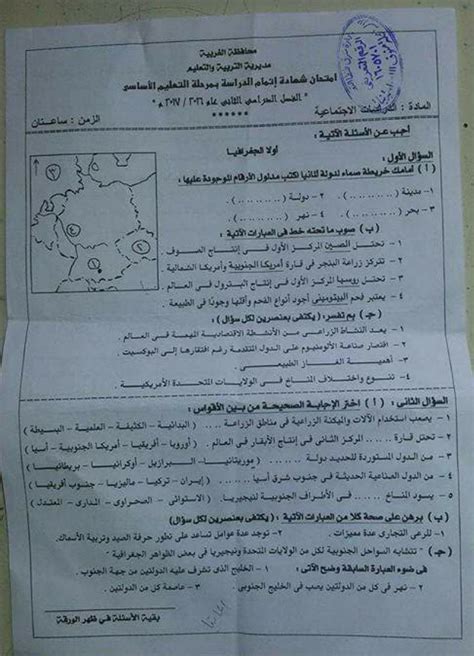 محافظة الغربية
مديرية التربية والتعليم
امتحان شهادة إتمام الدراسة بمرحلة التعليم الأساسى
" الفصل الدراسى الثانى عام ٢٠١٦ / ٢٠١٧ م "
******
المادة : الدراسات الاجتماعية
الزمن : ساعتان
أجب عن الأسئلة الآتية :
أولا الجغرافيا
السؤال الأول :
( أ ) أمامك خريطة صماء لدولة ألمانيا اكتب مدلول الأرقام الموجودة عليها :
١- مدينة ( .......... )
٢- دولة ( .......... )
٣- بحر ( .......... )
٤- نهر ( .......... )
( ب ) صوب ما تحته خط فى العبارات الآتية :
١ - تحتل الصين المركز الأول فى إنتاج الصوف
٢ - تتركز زراعة البنجر فى قارة أمريكا الجنوبية وأمريكا الشمالية .
٣ - تحتل روسيا المركز الأول فى إنتاج البترول فى العالم .
٤ - يعتبر فحم البيتومينى أجود أنواع الفحم وأقلها وجودًا فى الطبيعة .
( جـ ) بم تفسر : ( يكتفى بعنصرين لكل سؤال )
١ - يعد النشاط الزراعى من الأنشطة الاقتصادية المهمة فى العالم .
٢ - اقتصار صناعة الألومنيوم على الدول المتقدمة رغم افتقارها إلى البوكسيت .
٣ - أهمية الغاز الطبيعى
٤ - تنوع واختلاف المناخ فى الولايات المتحدة الأمريكية .
السؤال الثانى : ( أ ) اختر الإجابة الصحيحة من بين الأقواس :
١ - يصعب استخدام الآلات والميكنة الزراعية فى مناطق الزراعة .... ( البدائية – الكثيفة – العلمية – البسيطة )
٢ - تحتل قارة .... المركز الثانى فى إنتاج الأبقار فى العالم . ( أوروبا – أفريقيا – أمريكا الجنوبية – آسيا )
٣ - من الدول المستوردة للحديد دولة .... ( موريتانيا – البرازيل – أوكرانيا – بريطانيا )
٤ - من الدول الصناعية الحديثة فى جنوب شرق آسيا .... ( إيران – تركيا – ماليزيا – جنوب أفريقيا )
٥ - يسود المناخ .... فى الأطراف الجنوبية لنيجيريا . ( الاستوائى – الصحراوى – المدارى – المعتدل )
( ب ) برهن على صحة كلا من العبارات الآتية : ( يكتفى بعنصرين لكل سؤال )
١ - للرعى التجارى عدة مميزات .
٢ - توجد عدة عوامل تساعد على تطور حرفة الصيد وتربية الأسماك .
( جـ ) - تتشابه السواحل الجنوبية لكل من الولايات المتحدة ونيجيريا فى بعض الظواهر الجغرافية "
فى ضوء العبارة السابقة وضح الآتى :
١ - الخليج الذى تشرف عليه الدولتين من جهة الجنوب .
٢ - نهر فى كل من الدولتين يصب فى الخليج الجنوبى .
٣ - عاصمة كل من الدولتين .
بقية الأسئلة فى ظهر الورقة